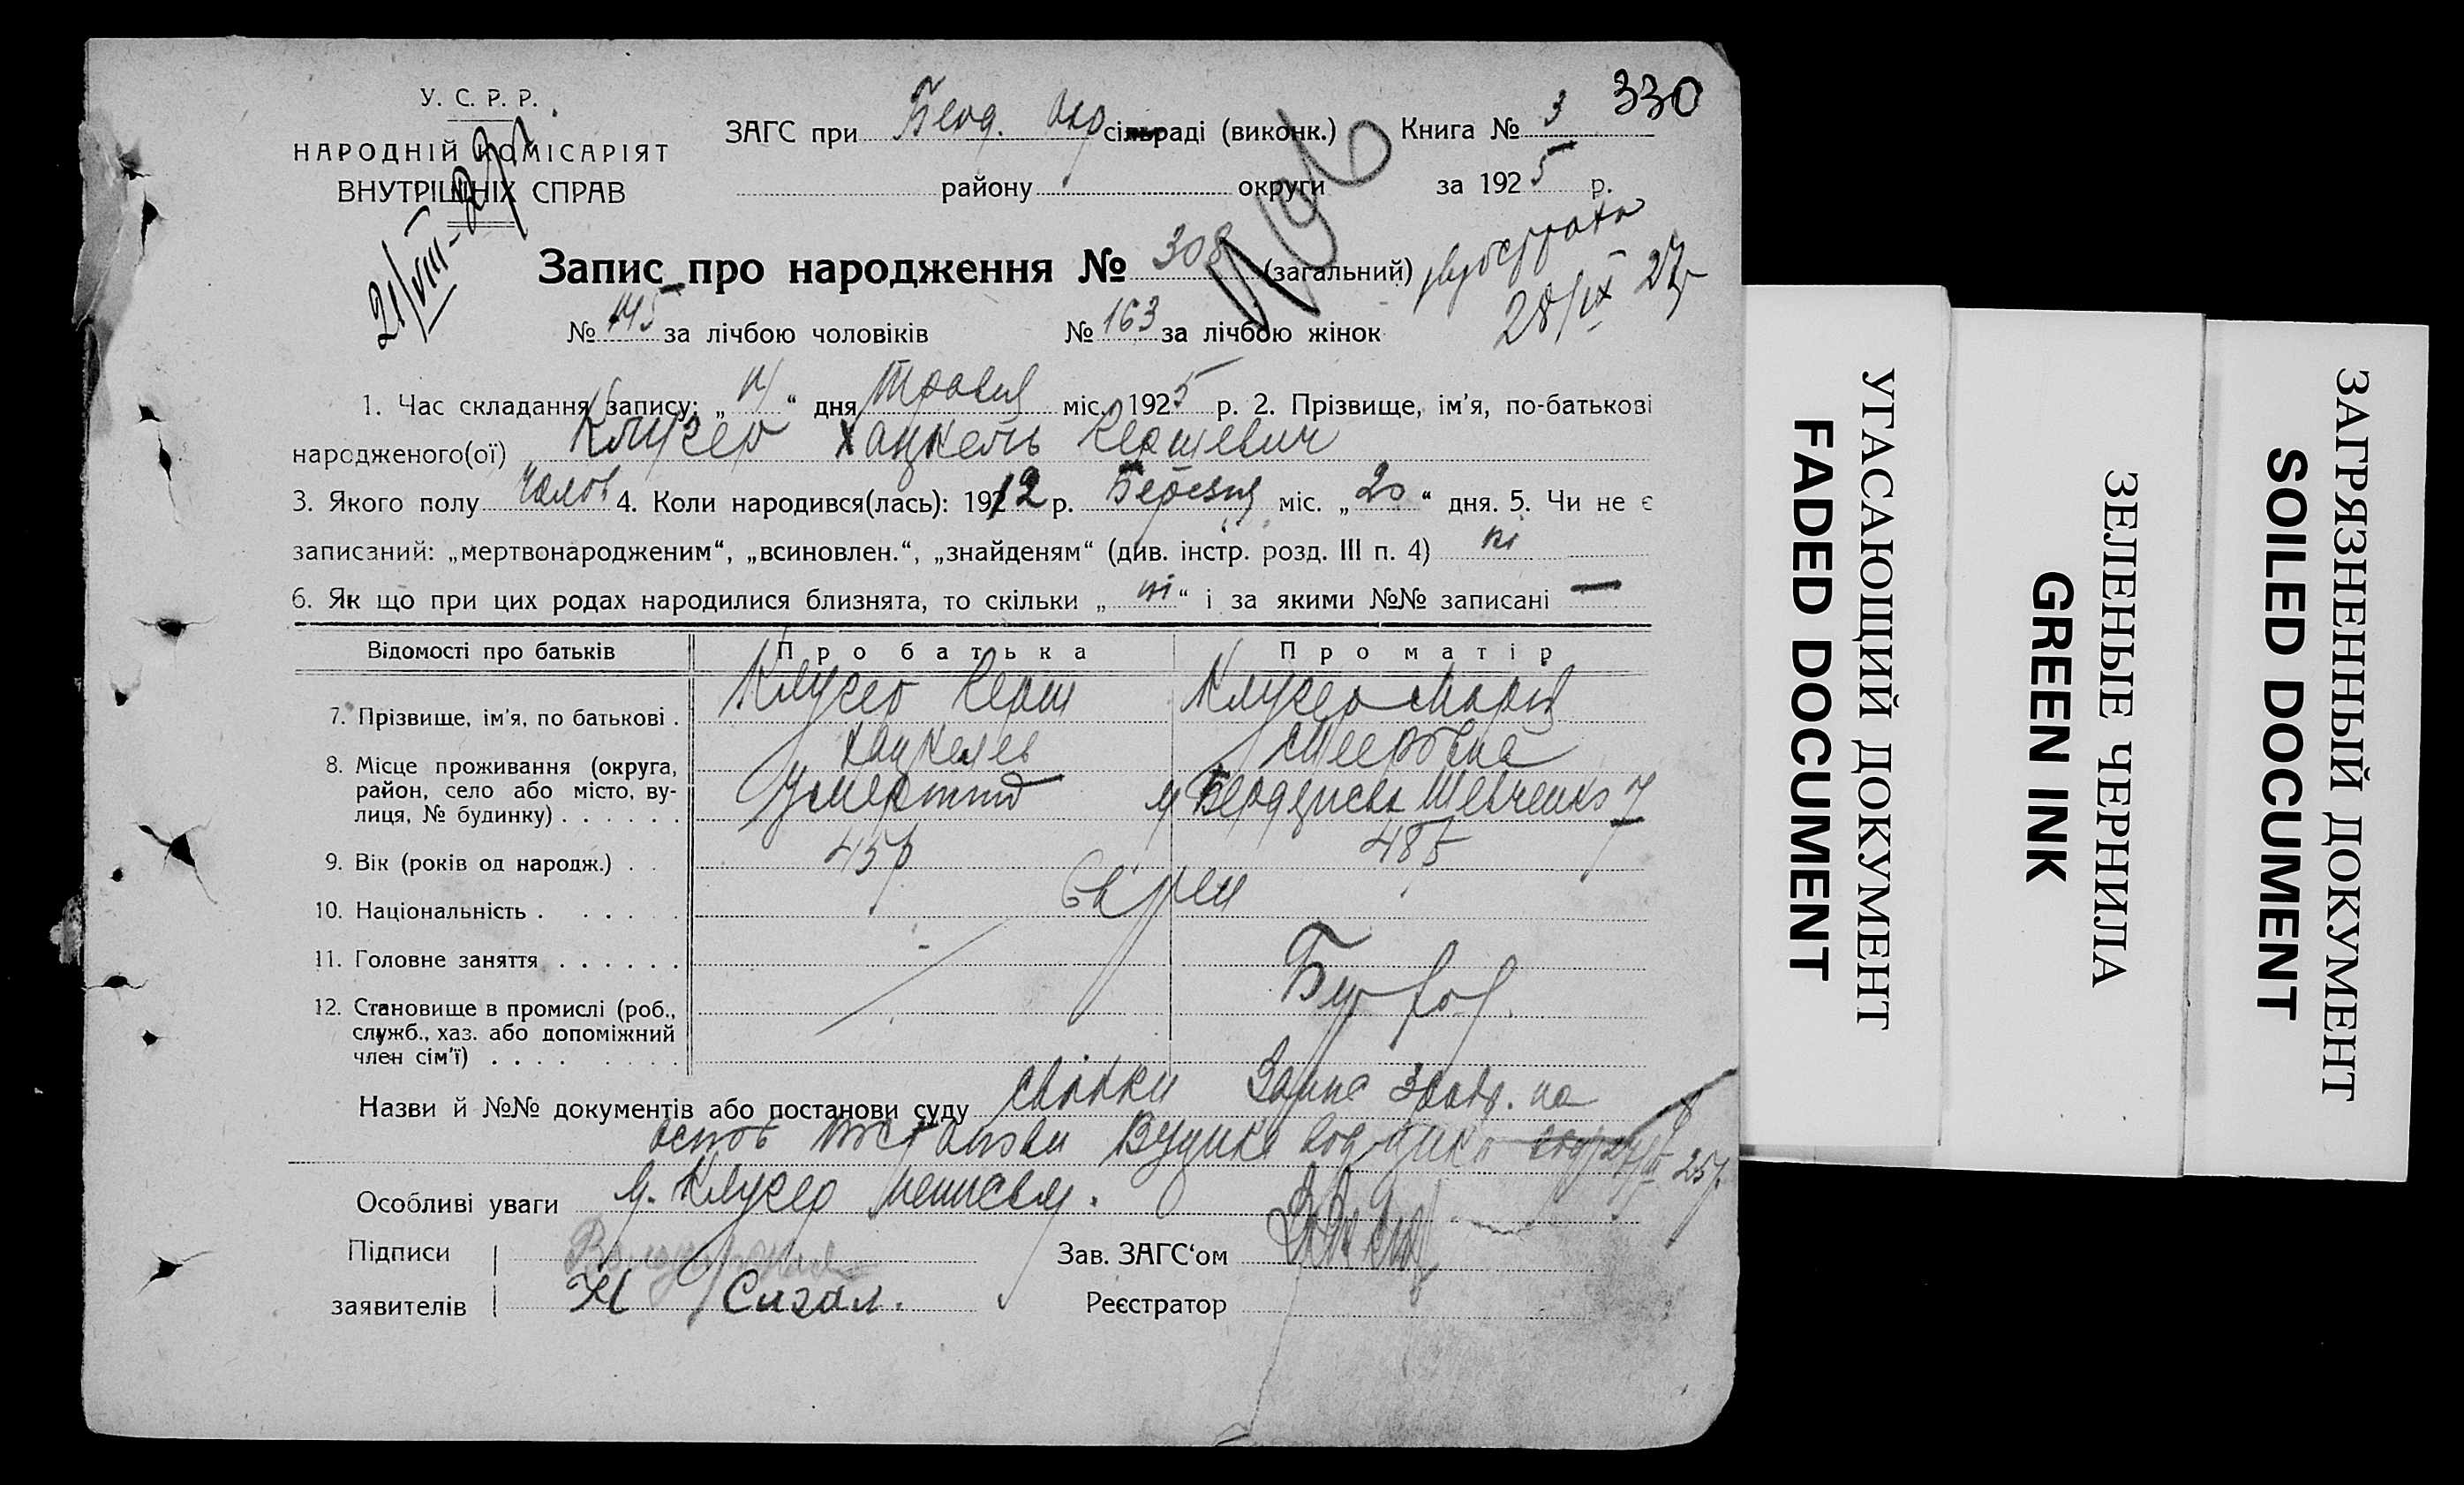 330
У. С. Р. Р.
НАРОДНІЙ КОМІСАРІЯТ
ВНУТРІШНІХ СПРАВ
21/VIII-27р
ЗАГС при Берд. Окр сільраді (виконк.) Книга № 3
району округи за 1925 р.
Запис про народження № 308 (загальний)
28/IX 27р
№ 145 за лічбою чоловіків № 163 за лічбою жінок
1. Час складання запису: „ “ дня Травня міс. 1925 р. 2. Прізвище, ім'я, по-батькові
народженого(ої) Клугер Хацкель Гершевич
3. Якого полу Чолов 4. Коли народився(лась): 1912 р. Березня міс. „20“ дня. 5. Чи не є
записаний: „мертвонародженим“, „всиновлен.“, „знайденям“ (див. інстр. розд. III п. 4) ні
6. Як що при цих родах народилися близнята, то скільки „ні“ і за якими №№ записані —
Відомості про батьків Про батька Про матір
7. Прізвище, ім'я, по батькові . Клугер Герш Клугер Марія
Хацкелев Мееровна
8. Місце проживання (округа,
район, село або місто, ву-
лиця, № будинку) . . . . . . Умерший м Бердичев Шевченко 7
9. Вік (років од народж.) . . 45р 48р
10. Національність . . . . . . Евреи
11. Головне заняття . . . . . .
12. Становище в промислі (роб.,
служб., хаз. або допоміжний
член сім'ї) . . . .
Назви й №№ документів або постанови суду Свідки Запис на
основ постанови
Особливі уваги Клугер
Підписи Зав. ЗАГС'ом
заявителів Н Сигал. Реєстратор
УГАСАЮЩИЙ ДОКУМЕНТ
FADED DOCUMENT
ЗЕЛЕНЫЕ ЧЕРНИЛА
GREEN INK
ЗАГРЯЗНЕННЫЙ ДОКУМЕНТ
SOILED DOCUMENT